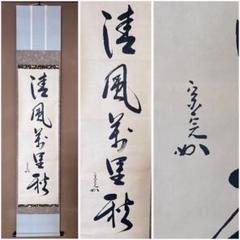 清風萬里秋
清風萬里秋